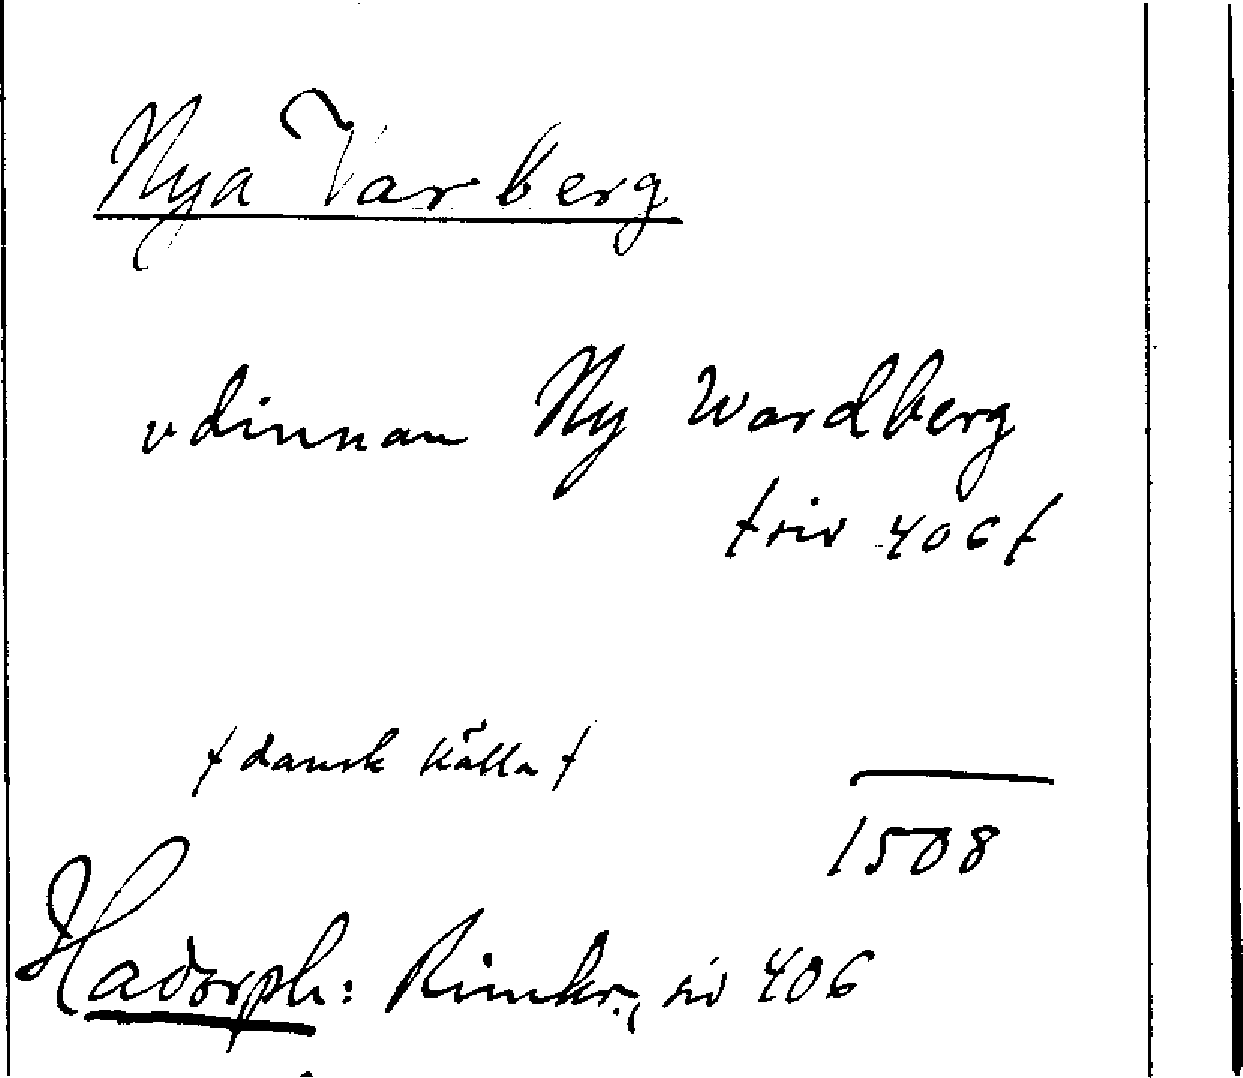 Nya Varberg
vdinnan Ny Wardberg
/siv 406/
/dansk källa/
1508
Hadorph: Rimkr., siv 406